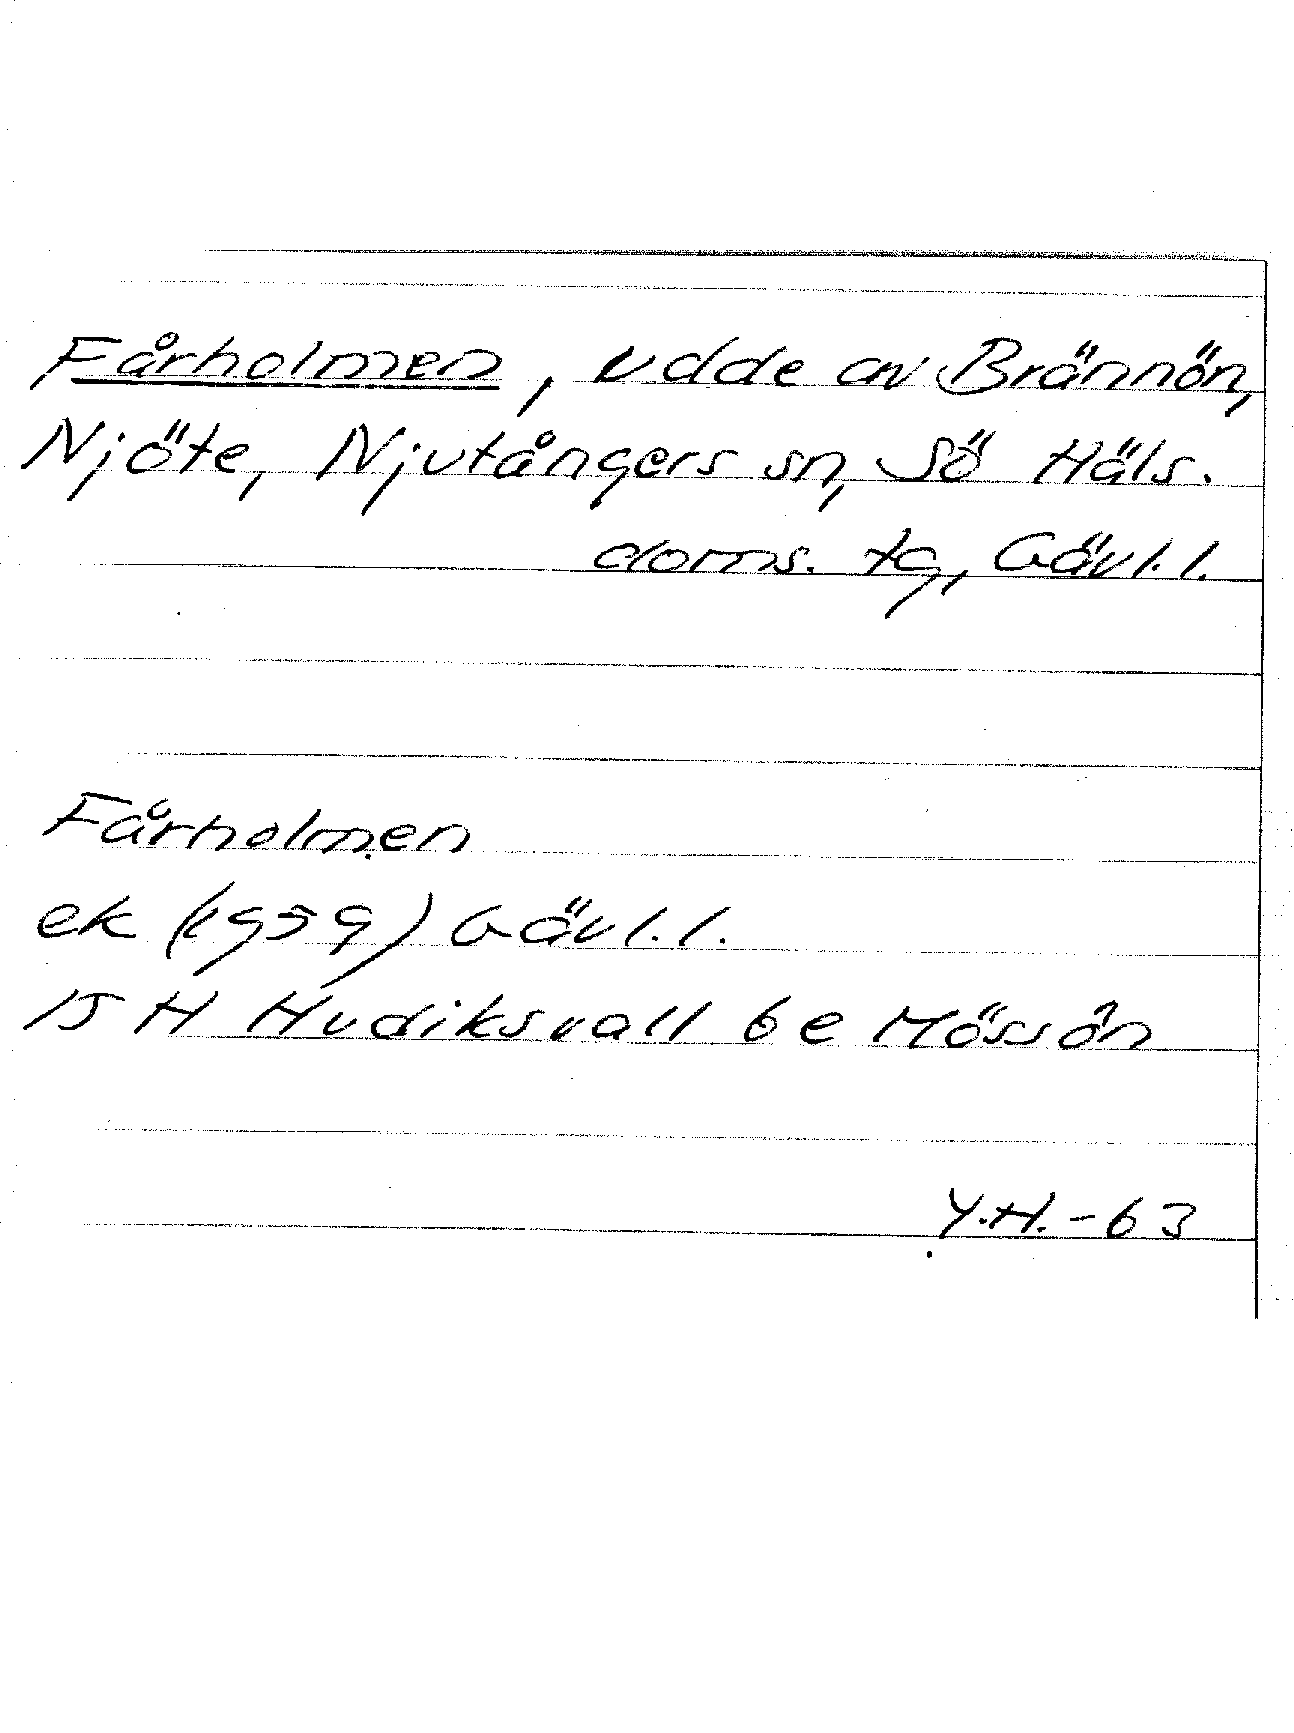 Fårholmen, udde av Brännön,
Njöte, Njutångers sn, Sö Häls.
doms. tg, Gävl. l.
Fårholmen
ek (1959) Gävl. l.
15 H Hudiksvall 6 e Mössön
Y.H.-63